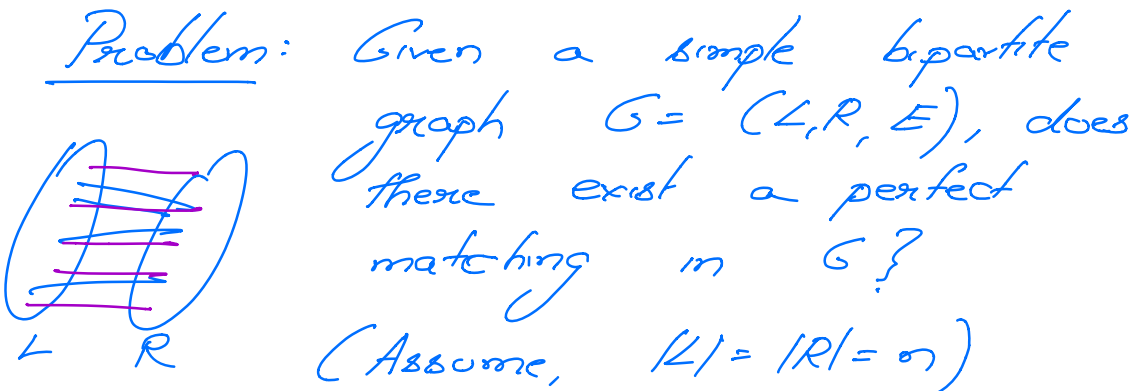 Problem: Given a simple bipartite
graph G = (L, R, E), does
there exist a perfect
matching in G?
L R (Assume, |L| = |R| = n)